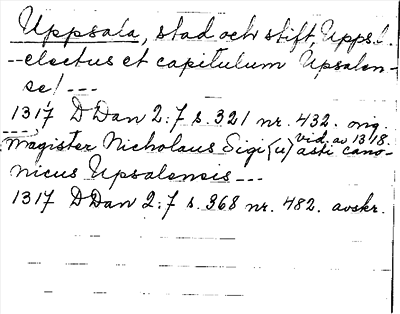 Uppsala, stad och stift, Upps.l.
--electus et capitulum Upsalen-
se! ---
1317 D Dan 2:7 s. 321 nr. 432. orig.
--- vid. av 1318.
magister Nicholaus Sigi(u)asti cano-
nicus Upsalensis ---
1317 D Dan 2:7 s. 368 nr. 482. avskr.